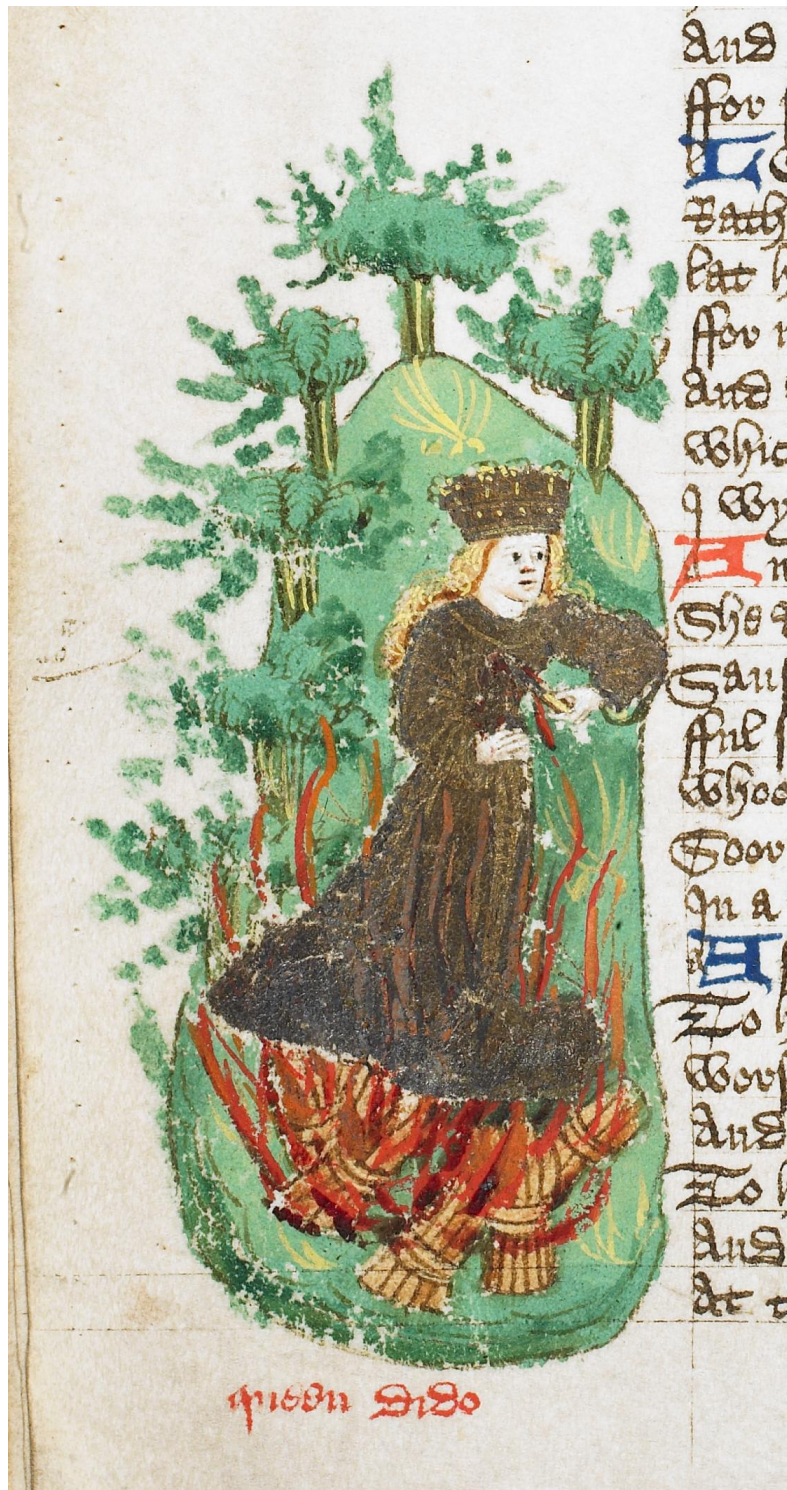 And
ffor
Le
Rath
lat h
ffor
And
whic
wy
An
She
Sauf
fful
whoo
Soor
In a
A
To h
Wors
And
To
And
At t
queen dido